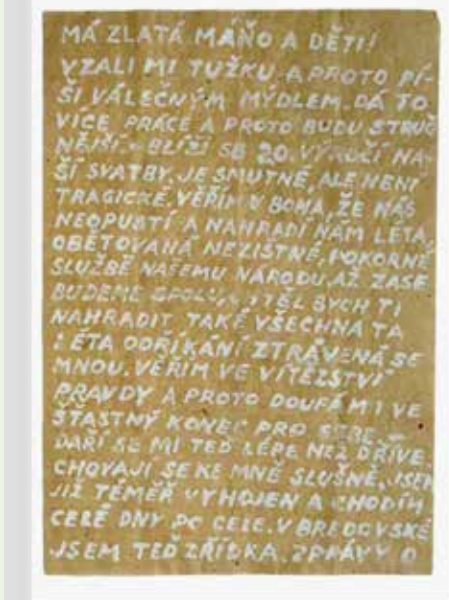 MÁ ZLATÁ MÁŇO A DĚTI!
VZALI MI TUŽKU A PROTO PÍ-
ŠI VÁLEČNÝM MÝDLEM. DÁ TO
VÍCE PRÁCE A PROTO BUDU STRUČ
NĚJŠÍ - BLÍŽÍ SE 20. VÝROČÍ NA-
ŠÍ SVATBY. JE SMUTNÉ, ALE NENÍ
TRAGICKÉ. VĚŘÍM V BOHA, ŽE NÁS
NEOPUSTÍ A NAHRADÍ NÁM LÉTA,
OBĚTOVANÁ NEZIŠTNÉ, POKORNÉ
SLUŽBĚ NAŠEMU NÁRODU. AŽ ZASE
BUDEME SPOLU, CHTĚL BYCH TI
NAHRADIT TAKÉ VŠECHNA TA
LÉTA ODŘÍKÁNÍ ZTRÁVENÁ SE
MNOU. VĚŘÍM VE VÍTĚZSTVÍ
PRAVDY A PROTO DOUFÁM I VE
ŠŤASTNÝ KONEC PRO SEBE -
DAŘÍ SE MI TEĎ LÉPE NEŽ DŘÍVE.
CHOVAJÍ SE KE MNĚ SLUŠNĚ, JSEM
JIŽ TÉMĚŘ VYHOJEN A CHODÍM
CELÉ DNY PO CELE. V BREDOVSKÉ
JSEM TEĎ ZŘÍDKA. ZPRÁVY O